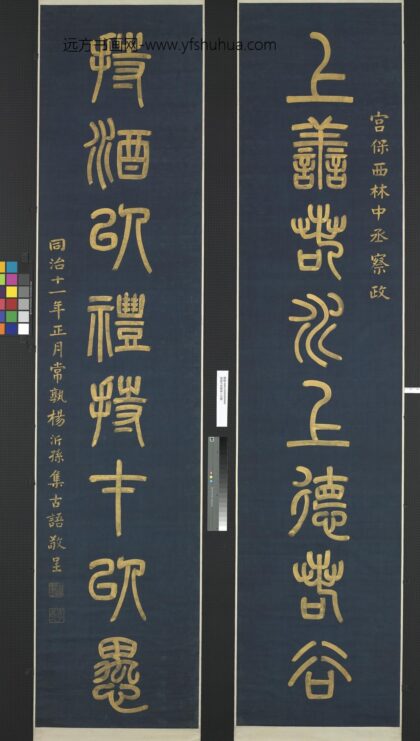 远方书画网-www.yfshuhua.com
宮保西林中丞察政
上善若水上德若谷
持酒以禮持才以愚
同治十一年正月常孰楊沂孫集古語敬呈